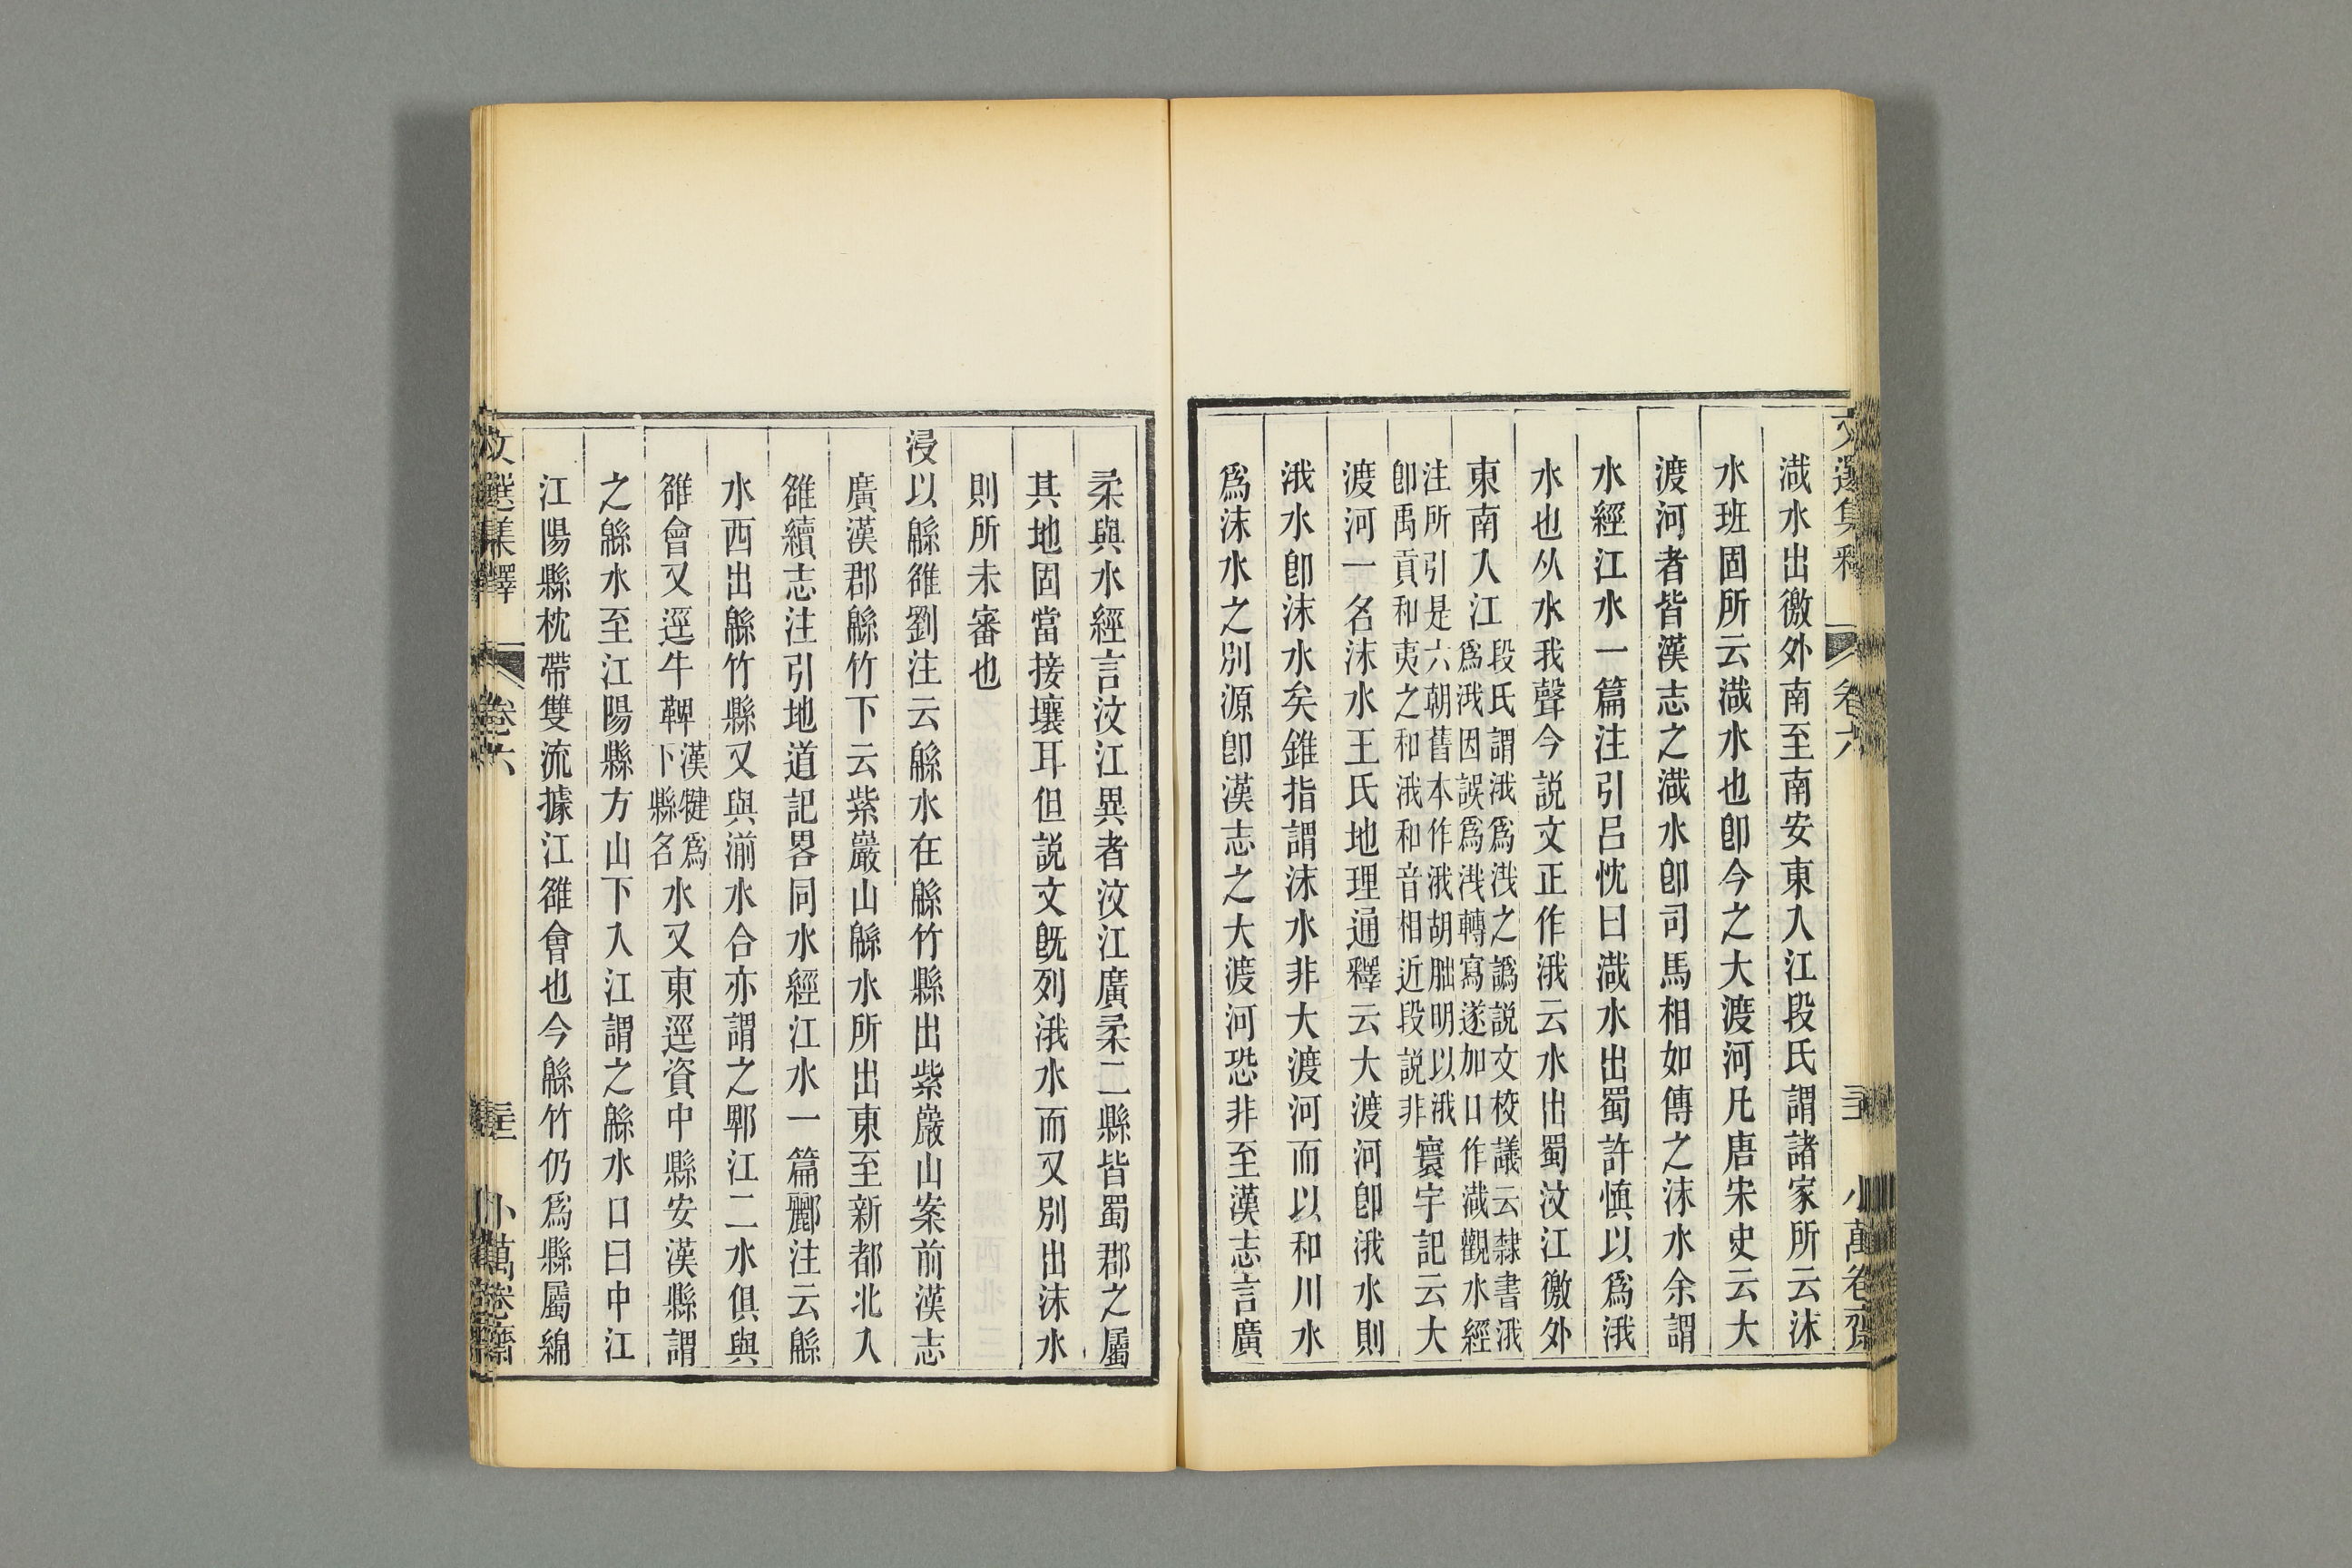 文選集釋 卷六 小萬卷齋
渽水出徼外南至南安東入江段氏謂諸家所云沫
水班固所云渽水也卽今之大渡河凡唐宋史云大
渡河者皆漢志之渽水卽司馬相如傳之沫水余謂
水經江水一篇注引呂忱曰渽水出蜀許愼以爲涐
水也从水我聲今説文正作涐云水出蜀汶江徼外
東南入江段氏謂涐爲渽之譌説文校議云隸書涐
爲𣵀因誤爲渽轉寫遂加口作渽觀水經
注所引是六朝舊本作涐胡朏明以涐
卽禹貢和夷之和涐和音相近段説非寰宇記云大
渡河一名沫水王氏地理通釋云大渡河卽涐水則
涐水卽沫水矣錐指謂沫水非大渡河而以和川水
爲沫水之別源卽漢志之大渡河恐非至漢志言廣
柔與水經言汶江異者汶江廣柔二縣皆蜀郡之屬
其地固當接壤耳但説文旣列涐水而又別出沫水
則所未審也
浸以緜雒劉注云緜水在緜竹縣出紫巖山案前漢志
廣漢郡緜竹下云紫巖山緜水所出東至新都北入
雒續志注引地道記畧同水經江水一篇酈注云緜
水西出緜竹縣又與湔水合亦謂之郫江二水俱與
雒會又逕牛鞞漢犍爲
下縣名水又東逕資中縣安漢縣謂
之緜水至江陽縣方山下入江謂之緜水口曰中江
江陽縣枕帶雙流據江雒會也今緜竹仍爲縣屬綿
文選集釋 卷六 小萬卷齋